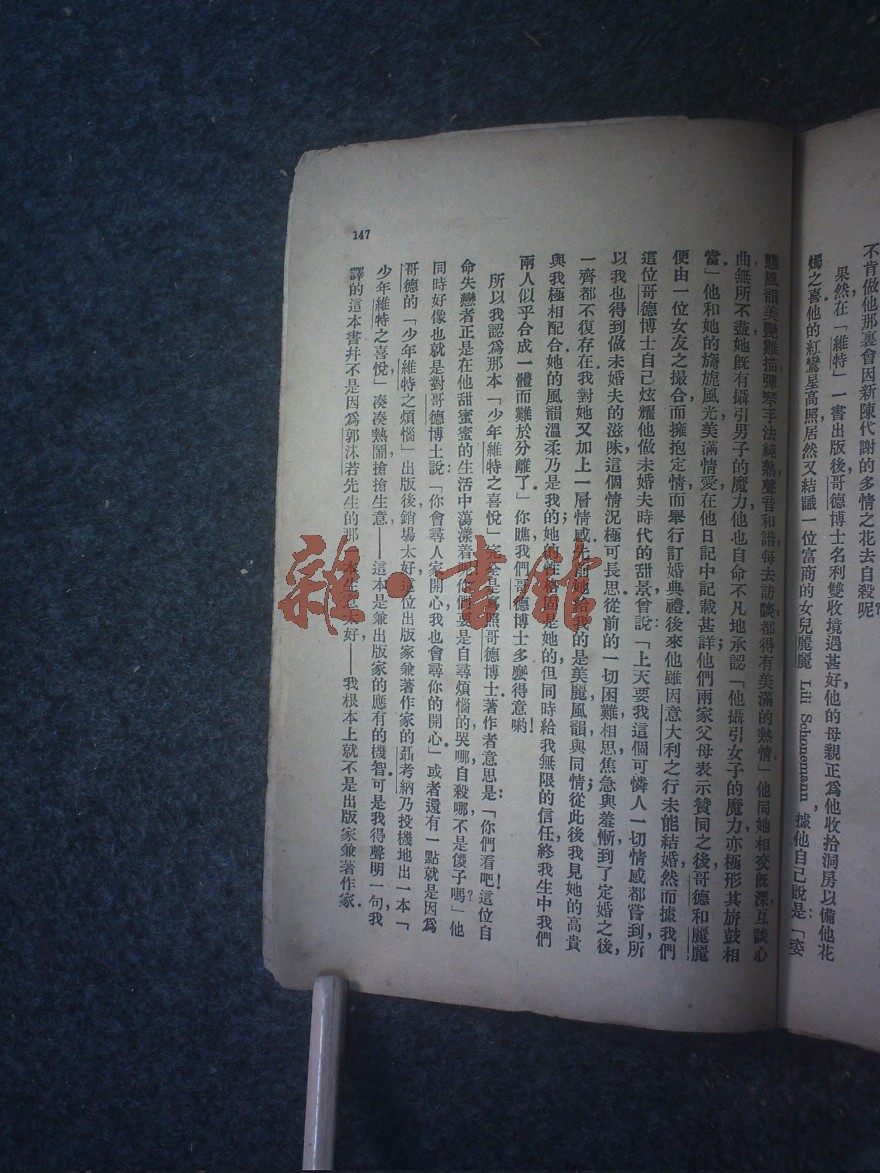 不肯做他那裏會因新陳代謝的多情之花去自殺呢?
果然在「維特」一書出版後,哥德博士名利雙收境遇甚好,他的母親正爲他收拾洞房以備他花
燭之喜,他的紅鸞星高照居然又結識一位富商的女兒麗麗 Lili Schonemann,據他自己說是:「姿
態風韻美艷難描,彈琴手法純熟,聲音和諧,每去訪談都得有美滿的熱情」他同她相交旣深,互談心
曲無所不盡,她旣有攝引男子的魔力,他也自命不凡地承認「他攝引女子的魔力亦極形其旂鼓相
當」他和她的旖旎風光美滿情愛在他日記中記載甚詳;他們兩家父母表示贊同之後哥德和麗麗
便由一位女友之撮合而擁抱定情而舉行訂婚典禮。後來他雖因意大利之行未能結婚,然而據我們
這位哥德博士自己炫耀他做未婚夫時代的甜景曾說:「上天要我這個可憐人一切情感都嘗到,所
以我也得到做未婚夫的滋味,這個情況極可長思,從前的一切困難相思焦急與羞慚到了定婚之後,
一齊都不復存在。我對她又加上一層情感,先前她給我的是美麗風韻與同情,從此後我見她的高貴
與我極相配合,她的風韻溫柔乃是我的;她的性格固是她的,但同時給我無限的信任,終我生中我們
兩人似乎合成一體而難於分離了。」你瞧我們哥德博士多麼得意喲!
所以我認爲那本「少年維特之喜悅」完全是寫照哥德博士,著作者意思是:「你們看吧!這位自
命失戀者正是在他甜蜜蜜的生活中蕩漾着,你們要是自尋煩惱的哭哪,自殺哪,不是傻子嗎?」他
同時好像也就是對哥德博士說:「你會尋人家開心我也會尋你的開心」或者還有一點就是因爲
哥德的「少年維特之煩惱」出版後銷場太好,這位出版家兼著作家的聶考納乃投機地出一本「
少年維特之喜悅」湊湊熱鬧搶搶生意——這本是兼出版家的應有的機智。可是我得聲明一句,我
譯的這本書幷不是因爲郭沫若先生的那一本生意太好——我根本上就不是出版家兼著作家。
147
雜·書館